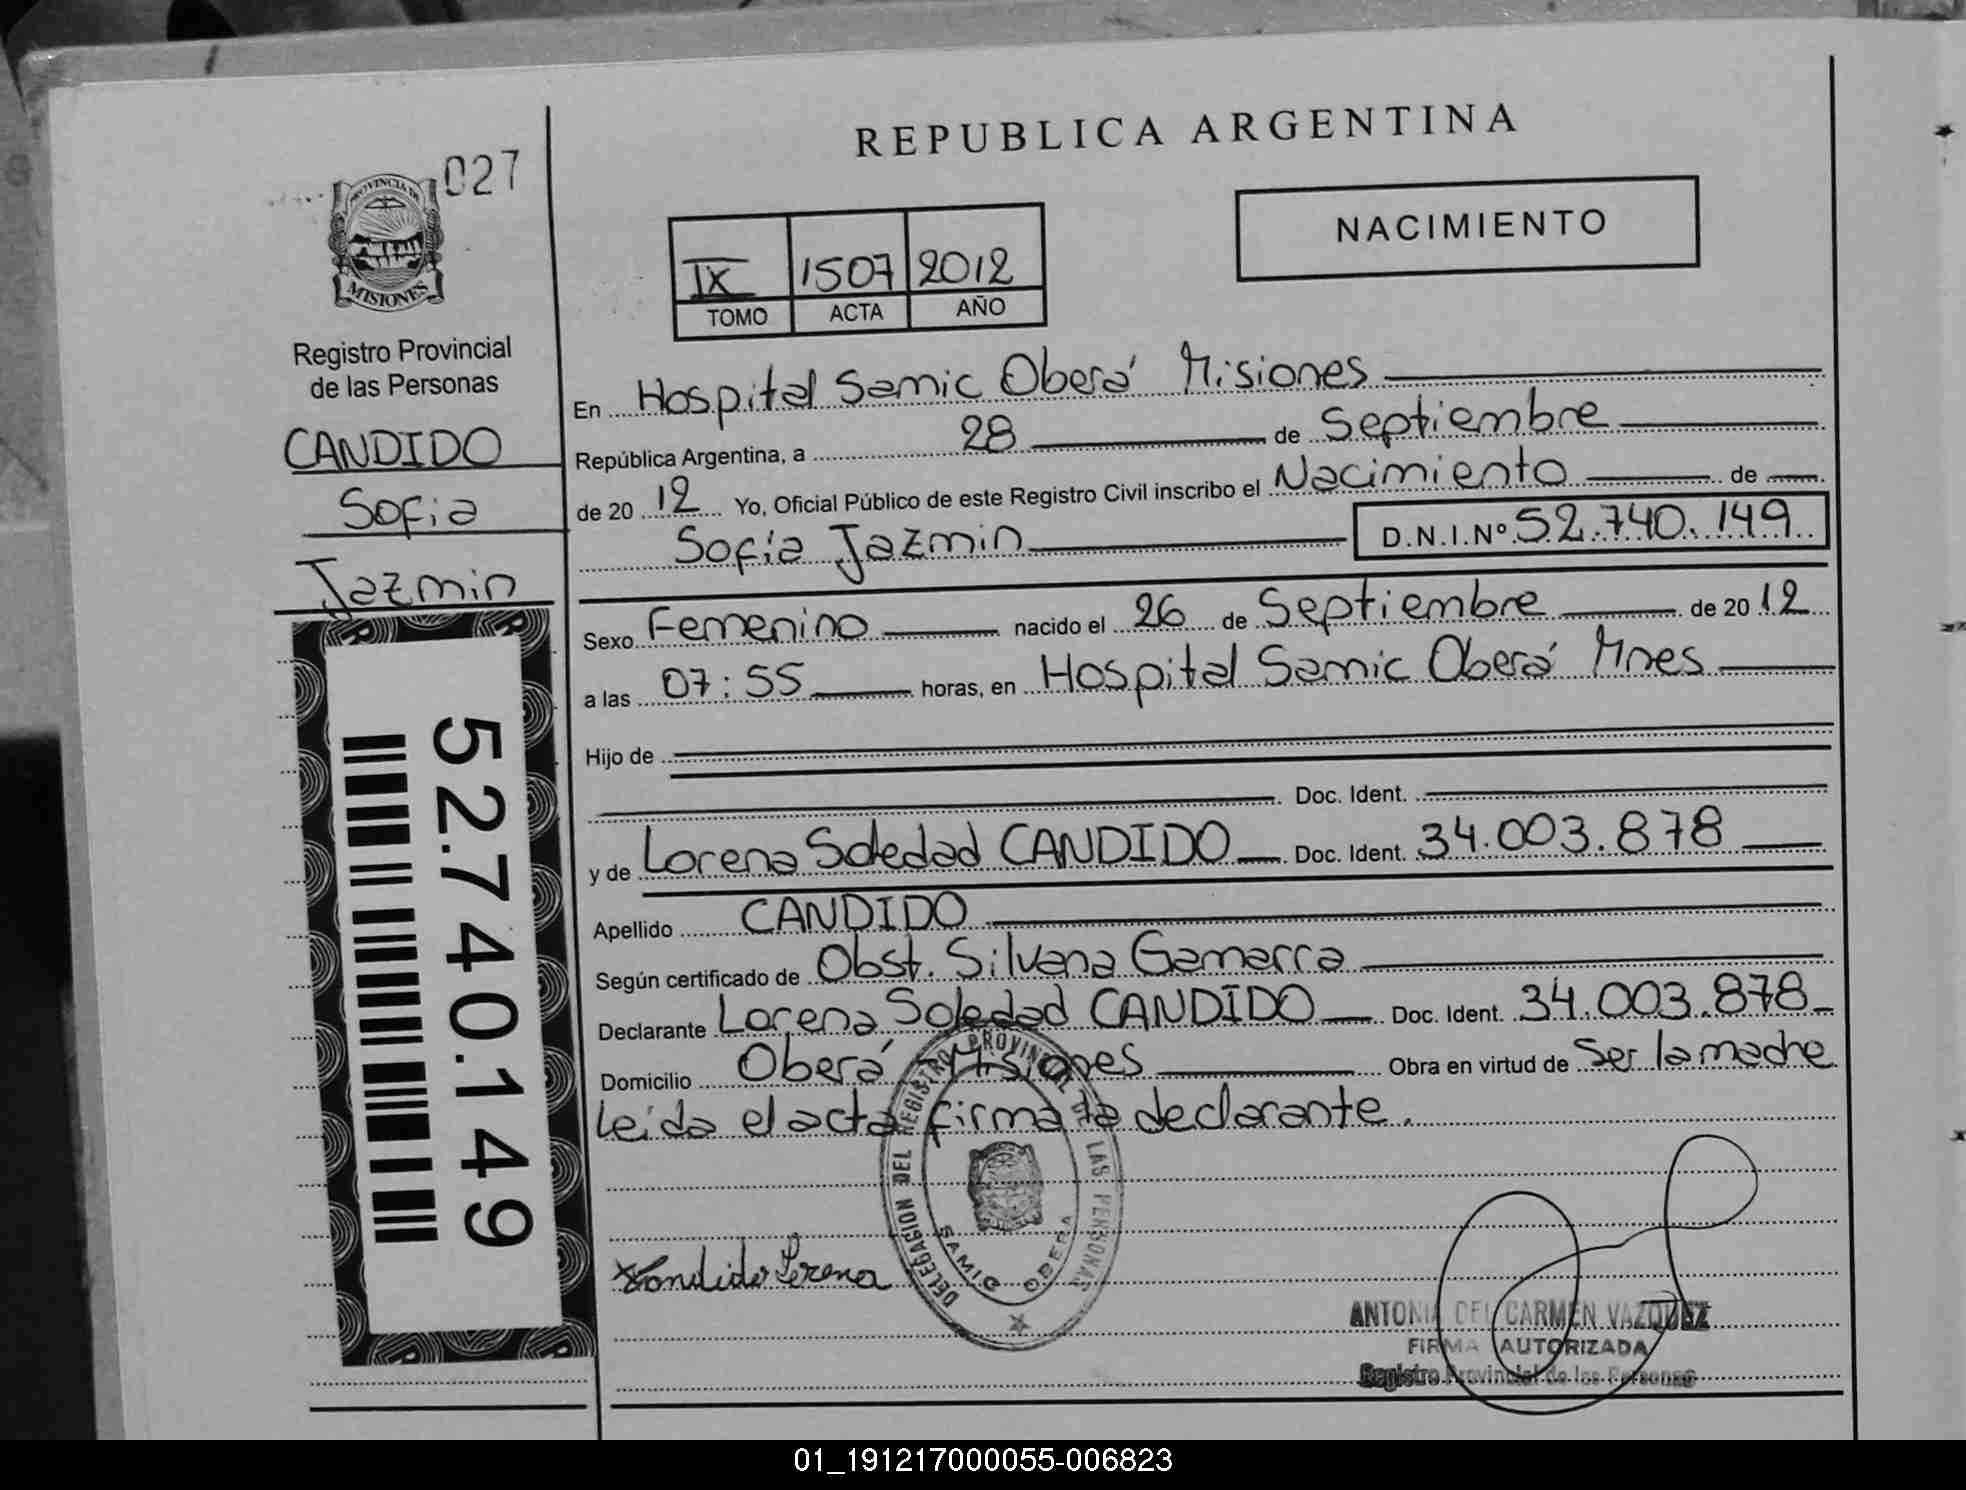 REPUBLICA ARGENTINA
027
PROVINCIA DE
MISIONES
NACIMIENTO
IX 1507 2012
TOMO ACTA AÑO
Registro Provincial
de las Personas
CANDIDO
Sofia
Jazmin
52.740.149
En Hospital Samic Oberá Misiones
República Argentina, a 28 de Septiembre
de 2012 Yo, Oficial Público de este Registro Civil inscribo el Nacimiento de
Sofía Jazmin D.N.I.Nº 52.740.149
Sexo Femenino nacido el 26 de Septiembre de 2012
a las 07:55 horas, en Hospital Samic Oberá Mnes
Hijo de
Doc. Ident.
y de Lorena Soledad CANDIDO Doc. Ident. 34.003.878
Apellido CANDIDO
Según certificado de Obst. Silvana Gamarra
Declarante Lorena Soledad CANDIDO Doc. Ident. 34.003.878
Domicilio Oberá Misiones Obra en virtud de Ser la madre
Leída el acta firma la declarante.
DELEGACION DEL REGISTRO PROVINCIAL DE LAS PERSONAS
SAMIC OBERA
Candido Lorena
ANTONIA DEL CARMEN VAZQUEZ
FIRMA AUTORIZADA
Registro Provincial de las Personas
01_191217000055-006823